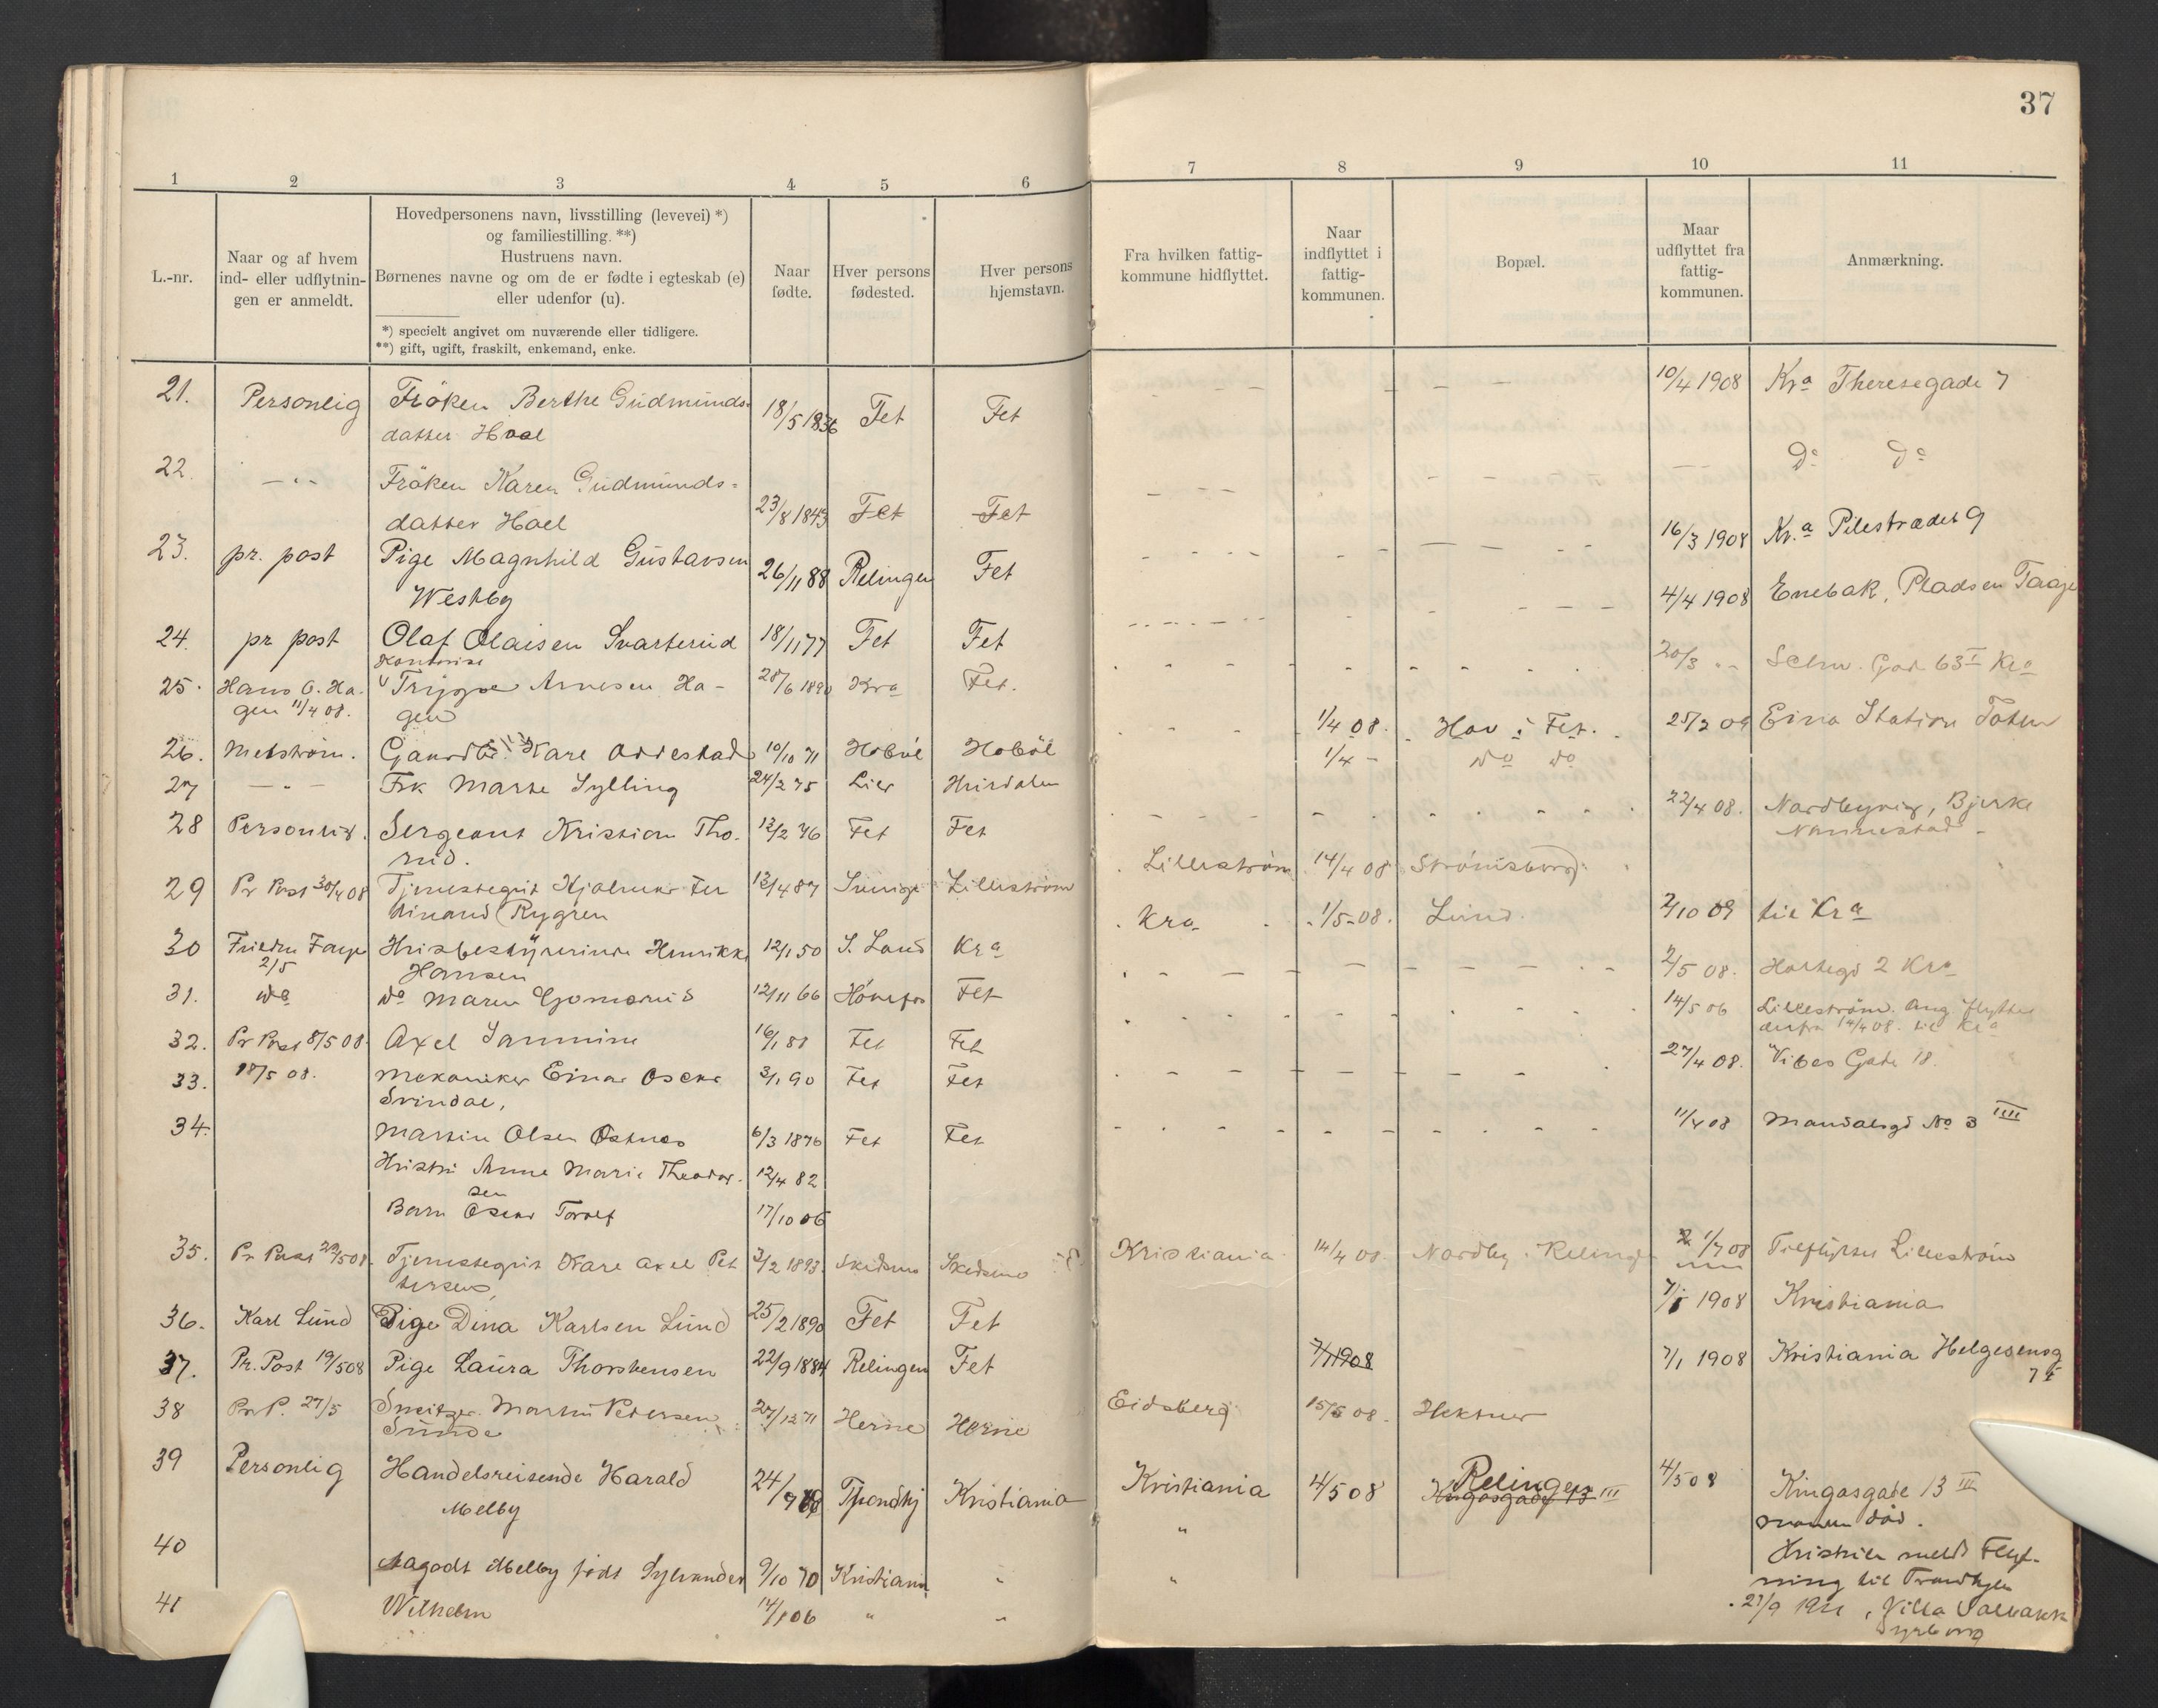 37
1 2 3 4 5 6 7 8 9 10 11
L.-nr.
Naar og af hvem
ind- eller udflytnin-
gen er anmeldt.
Hovedpersonens navn, livsstilling (levevei) *)
og familiestilling. **)
Hustruens navn.
Børnenes navne og om de er fødte i egteskab (e)
eller udenfor (u).
*) specielt angivet om nuværende eller tidligere.
**) gift, ugift, fraskilt, enkemand, enke.
Naar
fødte.
Hver persons
fødested.
Hver persons
hjemstavn.
Fra hvilken fattig-
kommune hidflyttet.
Naar
indflyttet i
fattig-
kommunen.
Bopæl.
Maar
udflyttet fra
fattig-
kommunen.
Anmærkning.
21. Personlig Frøken Berthe Gudmunds- 18/5 1836 Fet Fet 10/4 1908 Kra Theresegade 7
datter Hoel
22. — " — Frøken Karen Gudmunds- Do Do
datter Hoel 23/8 1843 Fet Fet
23. pr. post Pige Magnhild Gustavsen 26/11 88 Relingen Fet 16/3 1908 Kr.a Pilestrædet 9
Westby
24. pr post Olaf Olaisen Svarterud 18/1 77 Fet Fet 4/4 1908 Enebak, Pladsen Taaje
25. Hans O. Ha- Kontorist Trygve Arnesen Ha- 28/6 1890 Kra Fet. 20/3 Gade 63 I Kra
gen 11/4 08. gen
26. Gaardbr. Kare Oddestad 10/10 71 Hobøl Hobøl 1/4 08. Hov i Fet. 25/2 09 Eina Station Toten
27 — " — Frk Marte Sylling 24/2 75 Lier Hurdalen 1/4 - do do
28 Personlig. Sergeant Kristian Tho- 12/2 76 Fet Fet 22/4 08. Bjerke
rud. Nannestad
29 Pr Post 30/4 08 Tjenestegut Hjalmar Fer 13/4 87 Sverige Lillestrøm Lillestrøm 14/4 08 Strømsborg
dinand Rygren
30 2/5 Husbestyrerinde Henrikke 12/1 50 S. Land Kra Kra 1/5-08. Lund. 2/10 09 til Kra
Hansen
31. do do Maren 12/11 66 Hønefos Fet 2/5 08. 2 Kra
32. Pr Post 8/5 08. Axel 16/1 88 Fet Fet 14/5 06 Lillestrøm. Ang flyttet
derfra 14/4 08. til Kra
33. 18/5 08. Mekaniker Einar Oscar 3/1 90 Fet Fet 27/4 08. Vibes Gate 18.
Svindal,
34. Martin Olsen Østnes 6/3 1876 Fet Fet 11/4 08 Mandalsgd No 3 IIII
Hustru Anne Marie Theodor- 12/4 82
sen
Barn Oscar Torolf 17/10 06
35. Pr Post 29/5 08. Tjenestegut Kare Axel Pet 3/2 1893. Skedsmo Skedsmo Kristiania 14/4 08. Nordby i Relingen 1/7 08 Tilflyttet Lillestrøm
tersen,
36. Karl Lund Pige Dina Karlsen Lund 25/2 1890 Fet Fet 1908 Kristiania
37. Pr. Post 19/5 08 Pige Laura Thorstensen 22/9 1884 Relingen Fet 7/1 1908 7/1 1908 Kristiania Helgesensg
38 Pr P. 27/5 Martin Pedersen 27/12 71 Herne Herne Eidsberg 15/5 08. Hektner
Sunde
39 Personlig Handelsreisende Harald 24/ Trondhj Kristiania Kristiania 4/5 08 Relingen 4/5 08 Kingosgate 13 III
Melby Manden død.
40 Aagodt Melby født Sylvander 9/10 70 Kristiania " " Hustruen meldt Flyt-
ning til Trondhjem
41 Wilhelm 14/1 06 " " " 21/9 1921, Villa